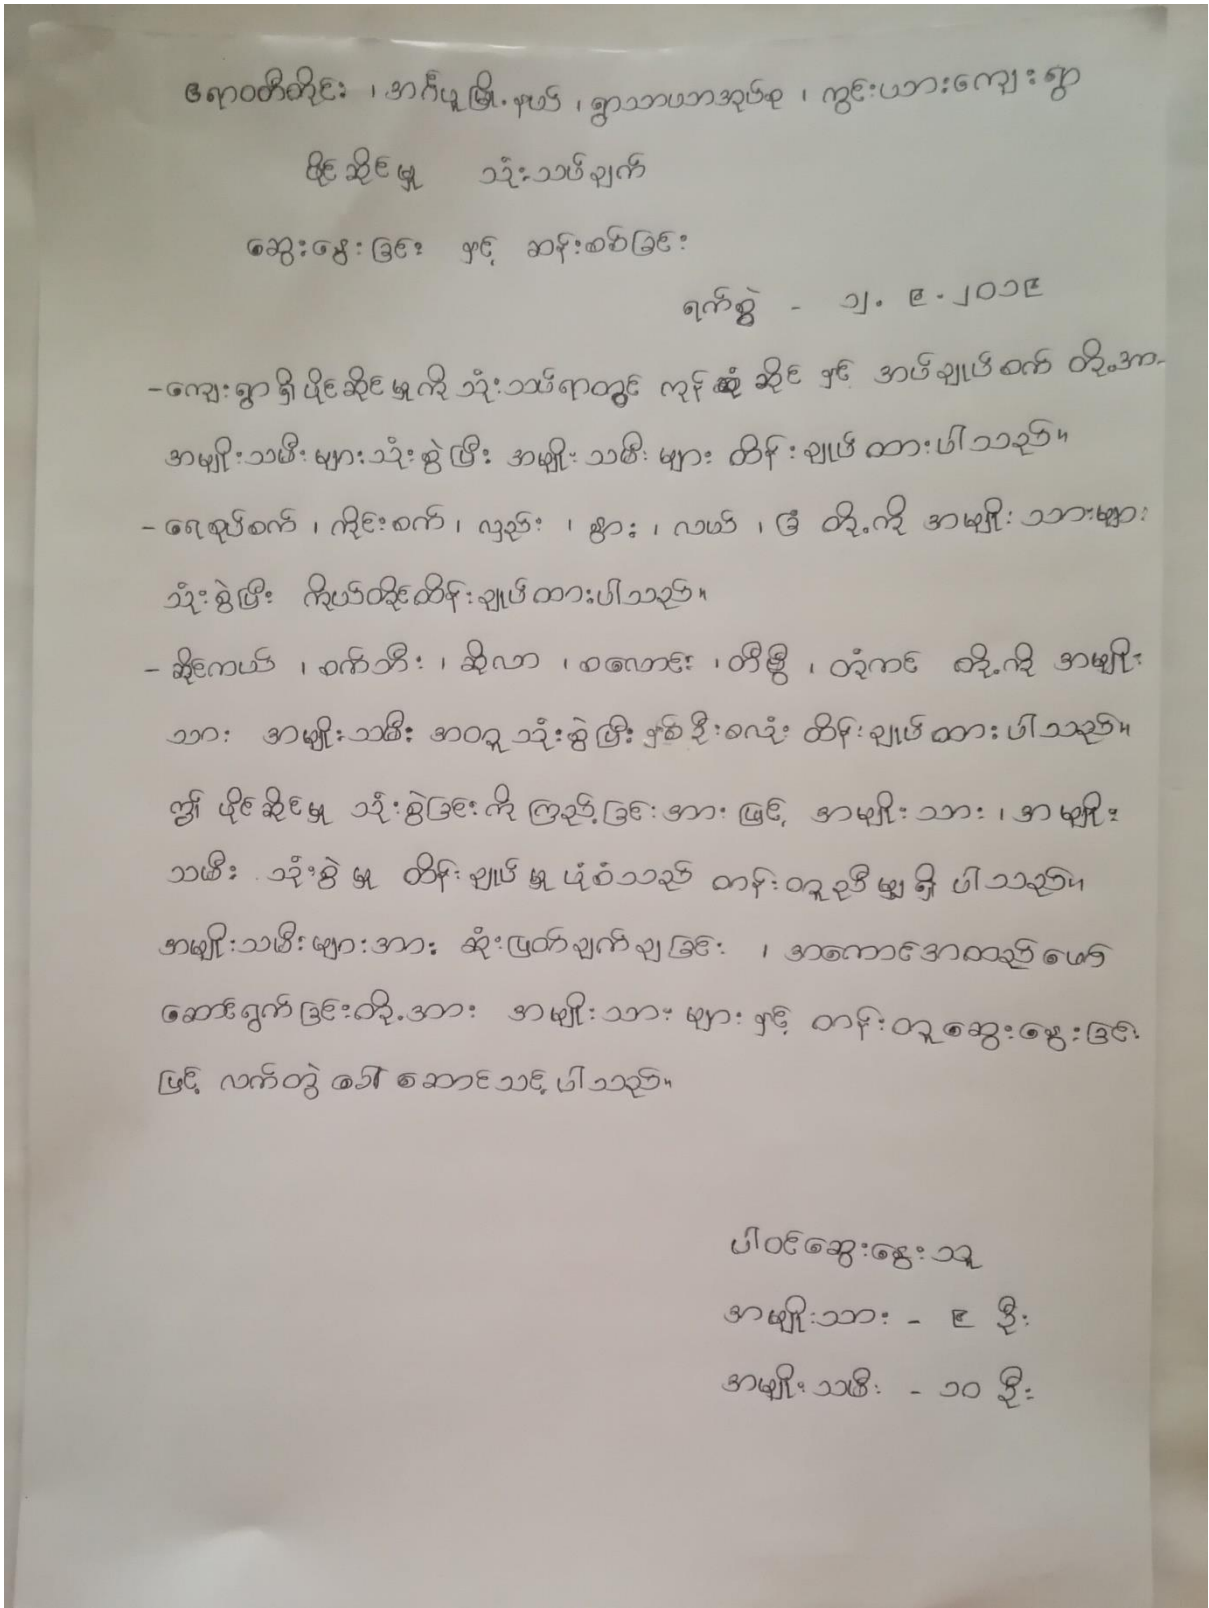 ဧရာဝတီတိုင်း ၊ အင်္ဂပူမြို့နယ် ၊ ရွာသာယာအုပ်စု ၊ ကွင်းပဘားကျေးရွာ
ပိုင်ဆိုင်မှု သုံးသပ်ချက်
ဆွေးနွေးခြင်း နှင့် ဆန်းစစ်ခြင်း
ရက်စွဲ - ၁၂.၉.၂၀၁၉
-ကျေးရွာရှိပိုင်ဆိုင်မှုကို သုံးသပ်ရာတွင် ကုန်စုံဆိုင် နှင့် အပ်ချုပ်စက် တို့အား
အမျိုးသမီးများသုံးစွဲပြီး အမျိုးသမီးများ ထိန်းချုပ်ထားပါသည်။
- ရေစုပ်စက် ၊ ကိုင်းစက် ၊ လှည်း ၊ နွား ၊ လယ် ၊ ခြံ တို့ကို အမျိုးသားများ
သုံးစွဲပြီး ကိုယ်တိုင်ထိန်းချုပ်ထားပါသည်။
- ဆိုင်ကယ် ၊ စက်ဘီး ၊ ဆိုလာ ၊ စလောင်း ၊ တီဗွီ ၊ တုံကင် တို့ကို အမျိုး
သား အမျိုးသမီး အတူသုံးစွဲပြီး နှစ်ဦးစလုံး ထိန်းချုပ်ထားပါသည်။
ဤ ပိုင်ဆိုင်မှု သုံးစွဲခြင်းကို ကြည့်ခြင်းအားဖြင့် အမျိုးသား ၊ အမျိုး
သမီး သုံးစွဲမှု ထိန်းချုပ်မှုပုံစံသည် တန်းတူညီမျှရှိပါသည်။
အမျိုးသမီးများအား ဆုံးဖြတ်ချက်ချခြင်း ၊ အကောင်အထည်ဖော်
ဆောင်ရွက်ခြင်းတို့အား အမျိုးသားများနှင့် တန်းတူဆွေးနွေးခြင်း
ဖြင့် လက်တွဲခေါ်ဆောင်သင့်ပါသည်။
ပါဝင်ဆွေးနွေးသူ
အမျိုးသား - ၉ ဦး
အမျိုးသမီး - ၁၀ ဦး